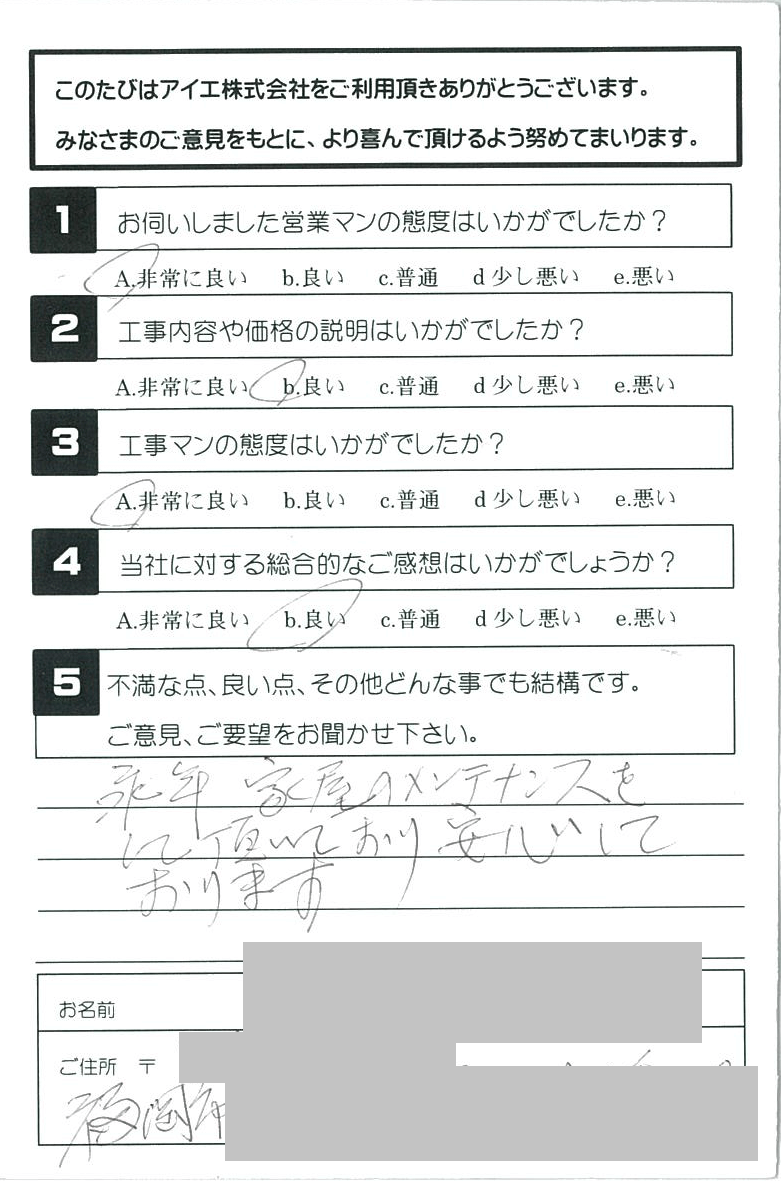 このたびはアイエ株式会社をご利用頂きありがとうございます。
みなさまのご意見をもとに、より喜んで頂けるよう努めてまいります。
1 お伺いしました営業マンの態度はいかがでしたか？
A.非常に良い b.良い c.普通 d 少し悪い e.悪い
2 工事内容や価格の説明はいかがでしたか？
A.非常に良い b.良い c.普通 d 少し悪い e.悪い
3 工事マンの態度はいかがでしたか？
A.非常に良い b.良い c.普通 d 少し悪い e.悪い
4 当社に対する総合的なご感想はいかがでしょうか？
A.非常に良い b.良い c.普通 d 少し悪い e.悪い
5 不満な点、良い点、その他どんな事でも結構です。
ご意見、ご要望をお聞かせ下さい。
年 家屋のメンテナンスを
して頂いており 安心して
おります
お名前
ご住所 〒
福岡市